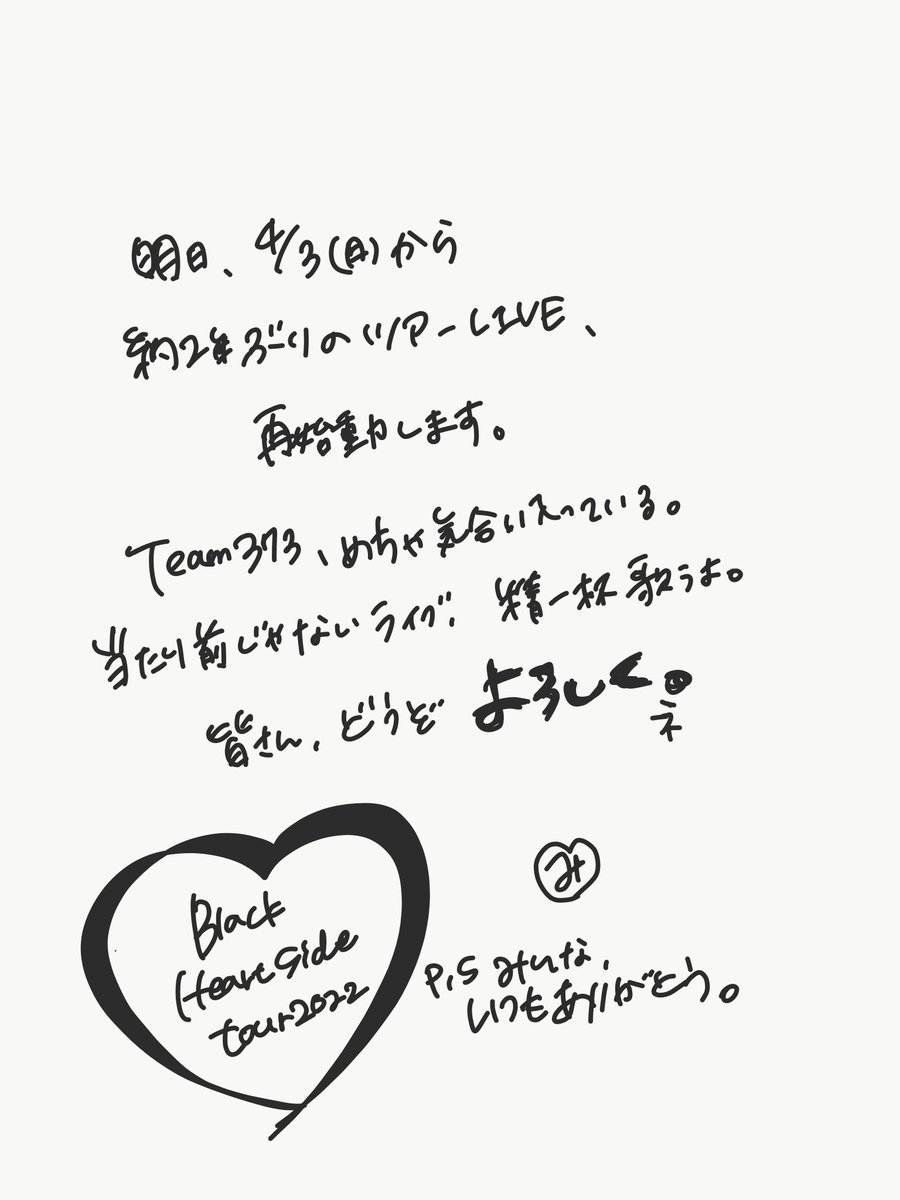 明日、4/3(日)から
約2年ぶりのツアーLIVE、
再始動します。
Team373、めちゃ気合い入っている。
当たり前じゃないライブ、精一杯歌うよ。
皆さん、どうぞよろしく。
ネ
み
Black
Heart Side
tour2022
P,S みんな、
いつもありがとう。